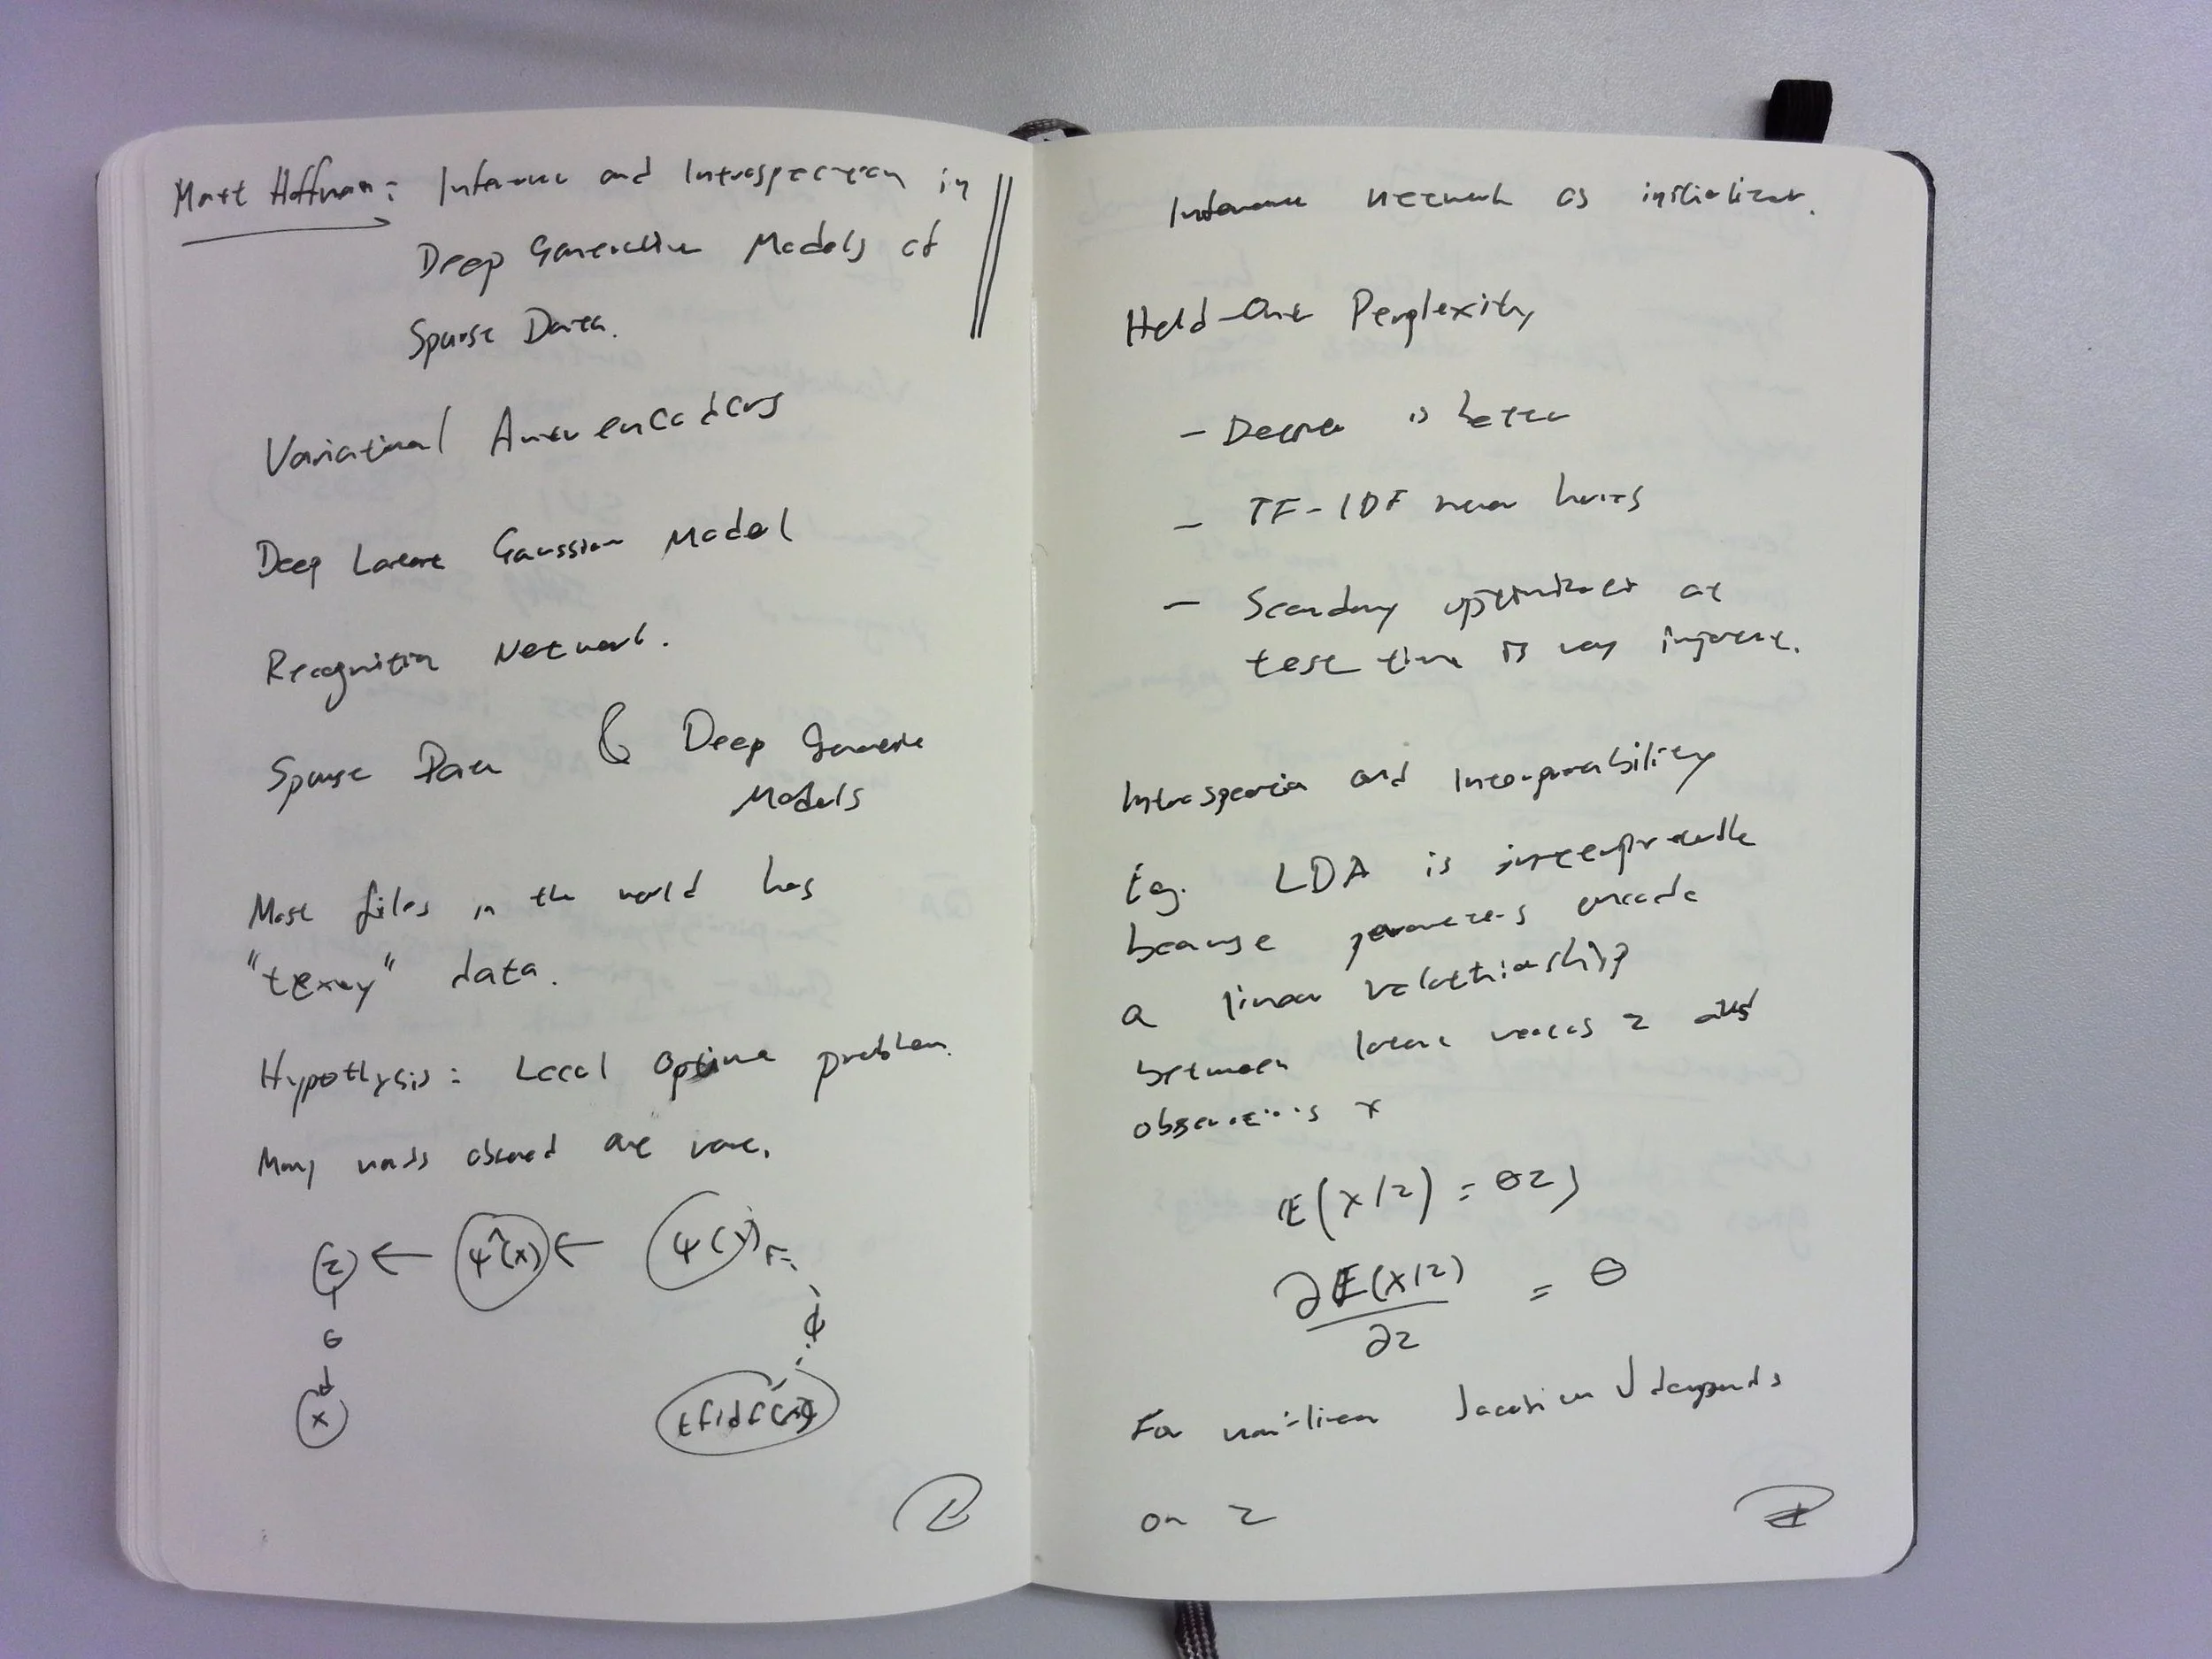 Matt Hoffman: Inference and Introspection in
Deep Generative Models of
Sparse Data.
Variational Autoencoders
Deep Latent Gaussian Model
Recognition Network.
Sparse Data & Deep Generative
Models
Most files in the world has
"texty" data.
Hypothysis: Local Optima problem.
Many words observed are rare.
z ← ψ*(x) ← ψ(x)
θ
ϕ
x
tfidf(x)
Inference network as initializer.
Held-Out Perplexity
- Deeper is better
- TF-IDF never hurts
- Secondary optimizer at
test time is very important.
Introspection and Interpretability
Eg. LDA is interpretable
because parameters encode
a linear relationship
between latent vectors z and
observations x
E(x|z) = θz;
∂E(x|z) = θ
∂z
For non-linear Jacobian J depends
on z